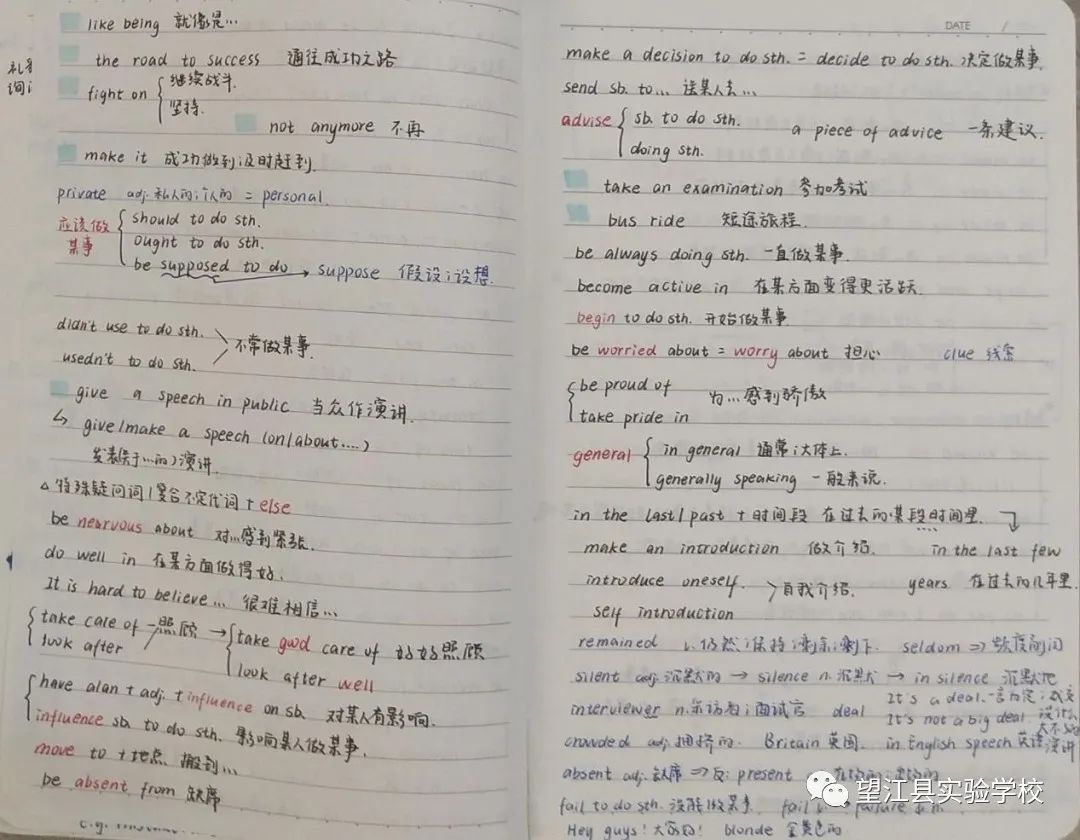 like being 就像是…
the road to success 通往成功之路
fight on 继续战斗.
坚持.
not anymore 不再
make it 成功做到;及时赶到.
private adj. 私人的;个人的 = personal.
应该做某事
should to do sth.
ought to do sth.
be supposed to do → suppose 假设;设想.
didn't use to do sth.
usedn't to do sth.
不常做某事.
give a speech in public 当众作演讲.
↳ give/make a speech (on/about....)
发表(关于…的)演讲.
△ 特殊疑问词/复合不定代词 + else
be nearvous about 对…感到紧张.
do well in 在某方面做得好.
It is hard to believe... 很难相信…
take care of
look after
照顾 →
take good care of 好好照顾
look after well
have a/an + adj. + influence on sb. 对某人有影响.
influence sb. to do sth. 影响某人做某事.
move to + 地点 搬到…
be absent from 缺席
DATE
make a decision to do sth. = decide to do sth. 决定做某事.
send sb. to... 送某人去…
advise sb. to do sth.
doing sth.
a piece of advice 一条建议.
take an examination 参加考试
bus ride 短途旅程.
be always doing sth. 一直做某事.
become active in 在某方面变得更活跃.
begin to do sth. 开始做某事.
be worried about = worry about 担心 clue 线索
be proud of
take pride in
为…感到骄傲
general in general 通常;大体上.
generally speaking 一般来说.
in the last/past + 时间段 在过去的某段时间里.
make an introduction 做介绍. in the last few
introduce oneself. years 在过去的几年里.
self introduction
自我介绍.
remained v. 仍然;保持;剩余;剩下. seldom => 频度副词
silent adj. 沉默的 → silence n. 沉默 → in silence 沉默地
interviewer n. 采访者;面试官 deal It's a deal. 一言为定;成交
It's not a big deal. 没什么大不了的
crowded adj. 拥挤的. Britain 英国. in English speech 英语演讲
absent adj. 缺席 => 反: present
fail to do sth. 没能做某事. fail
Hey guys! 大家好! blonde 金黄色的
望江县实验学校